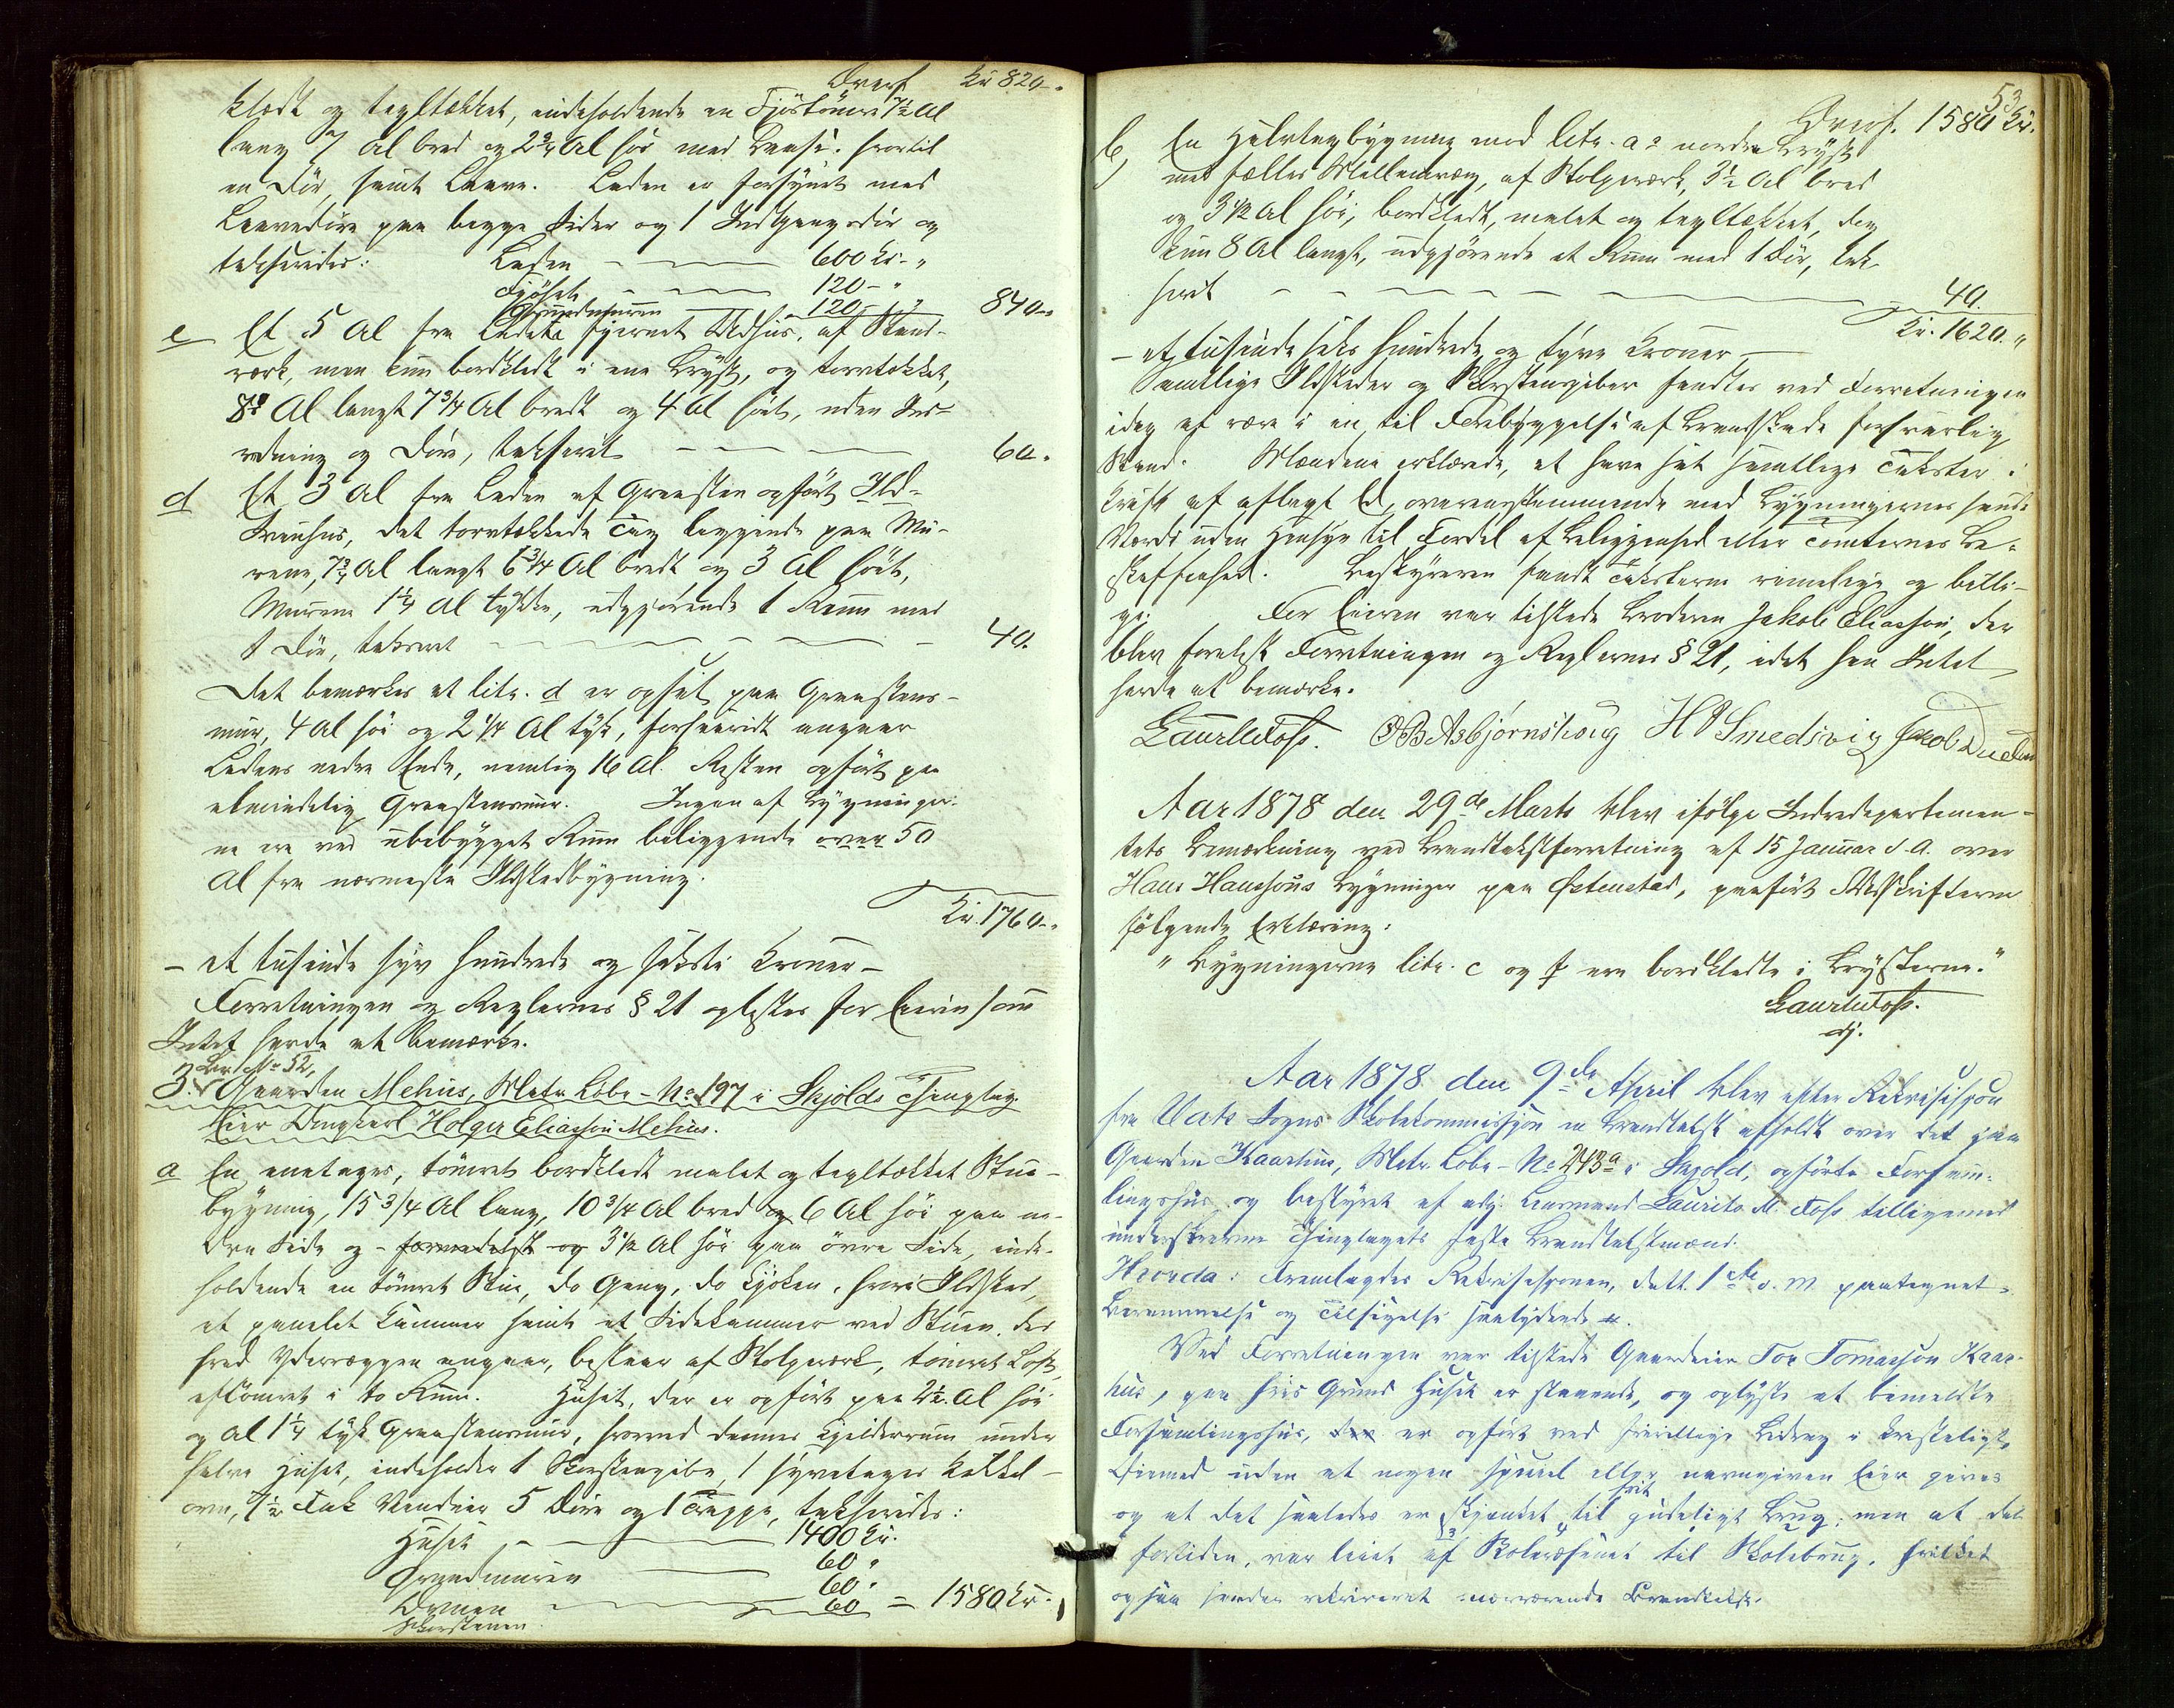 Overf. Kr 820-"
klædt og tegltækket, indeholdende en Fjøstømre 7½ Al
lang 7 Al bred og 2¾ Al høi med Baase. hvortil
en Dör, samt Laave. Laden er forsynet med
Laavedöre paa begge Sider og 1 Indgangsdör og
takseredes: Laden — 600 Kr-"
Fjöset — 120-"
Grundmuren — 120-" 840-"
c Et 5 Al fra Laden fjernet Udhus, af Stav-
værk, men kun bordklædt i ene Bryst, og torvtækket,
8½ Al langt 7¾ Al bredt og 4 Al höit, uden Ind-
redning og Döre, takseret — 60.
d Et 3 Al fra Laden af Graasten opfört Ild-
huus, det torvtækkede Tag liggende paa Mu-
rene, 7¾ Al langt 6¾ Al bredt og 3 Al höit,
Murene 1¼ Al tykke, udgjörende 1 Rum med
1 Dör, takseret — 40.
Det bemærkes at litr. d er opsat paa Graastens-
mur, 4 Al høi og 2¼ Al tyk, forsaavidt angaar
Ladens nedre Ende, nemlig 16 Al. Resten opfört paa
almindelig Graastensmur. Ingen af Bygninger-
ne er ved ubebygget Rum beliggende over 50
Al fra nærmeste Ildstedbygning.
Kr. 1760-"
— et tusinde syv hundrede og seksti Kroner —
Forretningen og Reglernes § 21 oplæstes for Eieren som
Intet havde at bemærke.
Br No 52,
3. Gaarden Mehus, Matr. Löbe-No 197 i Skjolds Thinglag.
Eier Ungkarl Holger Eliassön Mehus.
a En enetages, tömret bordklædt malet og tegltækket Stue-
bygning, 15¾ Al lang, 10¾ Al bred og 6 Al höi paa ne-
dre Side og 3½ Al höi paa övre Side, inde-
holdende en tömret Stue, do Gang, do Kjöken, hvori Ildsted,
et panelet Kammer samt et Sidekammer ved Stuen, der
hvad Ydervæggen angaar, bestaar af Stolpeværk, tömret Loft,
aftömret i to Rum. Huset, der er opfört paa 2½ Al höi
og Al 1¼ tyk Graastensmur, hvorved dannes Kjelderrum under
halve Huset, indeholder 1 Skorstenspibe, 1 fyretages Kakkel-
ovn, 7½ Fak Vinduer 5 Döre og 1 Trappe, takseredes:
Huset — 1400 Kr.
Grundmuren — 60 "
Ovnen — 60 "
Skorstenen — 60 = 1580 Kr.
53
Overf. 1580 Kr.
b, En Halvtagbygning mod litr. a's nordre Bryst
med fælles Mellemvæg, af Stolpeværk, 3½ Al bred
og 3½ Al höi, bordklædt, malet og tegltækket, dog
kun 8 Al langt, udgjörende et Rum med 1 Dör, tak-
seret — 40.
Kr. 1620."
— et tusinde seks hundrede og tyve Kroner —
Samtlige Ildsteder og Skorstenspiber fandtes ved Forretningen
idag at være i en til Forebyggelse af Brandskade forsvarlig
Stand. Mændene erklærede, at have sat samtlige Takster i
Kraft af aflagt Ed, overensstemmende med Bygningernes sande
Værdi uden Hensyn til Fordel af Beliggenhed eller Tomternes Be-
skaffenhed. Bestyreren fandt Taksterne rimelige og billi-
ge. For Eieren var tilstede Broderen Jakob Eliassön, der
blev forelæst Forretningen og Reglernes § 21, idet han Intet
havde at bemærke.
Laur M Foss. O B Asbjørnshoug H O Smedsvig Jacob Dueland
Aar 1878 den 29de Marts blev ifölge Indredepartemen-
tets Bemærkning ved Brandtakstforretning af 15 Januar d.A. over
Hans Hanssöns Bygninger paa Østenstad, paafört Udskrifterne
fölgende Erklæring:
"Bygningerne litr. c og f ere bordklædte i Brysterne."
Laur M Foss.
cj.
Aar 1878 den 9de April blev efter Rekvisisjon
fra Vats Sogns Skolekommisjon en Brandtakst afholdt over det paa
Gaarden Kaarhus, Matr. Löbe-No 243a i Skjold, opförte Forsam-
lingshus og bestyret af adj. Lensmand Laurits M. Foss tilligemed
underskrevne Thinglagets faste Brandtakstmænd.
Hvorda: Fremlagdes Rekvisisjonen, datt. 1ste d. M. paategnet
Berammelse og Tilsigelse saalydende #.
Ved Forretningen var tilstede Gaardeier Tor Tomassön Kaar-
hus, paa hvis Grund Huset er staaende, og oplyste at bemeldte
Forsamlingshus, er opfört ved frivillige Bidrag i kristeligt
Öiemed uden at nogen speciel eller navngiven Eier gives
og at det saaledes er skjænket frit til gudeligt Brug; men at det
for Tiden, var leiet af Skolevæsenet til Skolebrug, hvilket
ogsaa havde rekvireret nærværende Brandtakst.